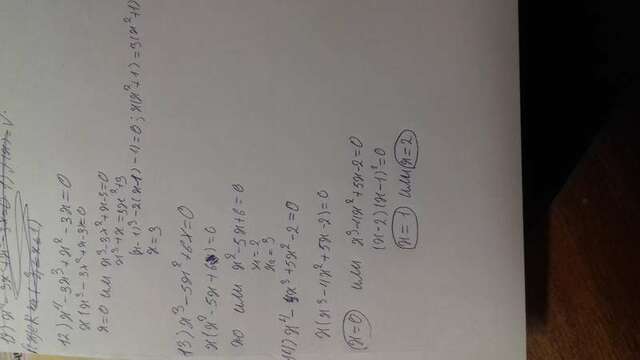 12) x⁴ - 3x³ + x² - 3x = 0
x(x³ - 3x² + x - 3) = 0
x = 0 или x³ - 3x² + x - 3 = 0
x³ + x = 3x² + 3
(x - 1)³ - 2(x - 1) - 4 = 0; x(x² + 1) = 3(x² + 1)
x = 3
13) x³ - 5x² + 6x = 0
x(x² - 5x + 6) = 0
x=0 или x² - 5x + 6 = 0
x₁ = 2
x₂ = 3
14) x⁴ - 4x³ + 5x² - 2 = 0
x(x³ - 4x² + 5x - 2) = 0
x = 0 или x³ - 4x² + 5x - 2 = 0
(x - 2)(x - 1)² = 0
x = 1 или x = 2